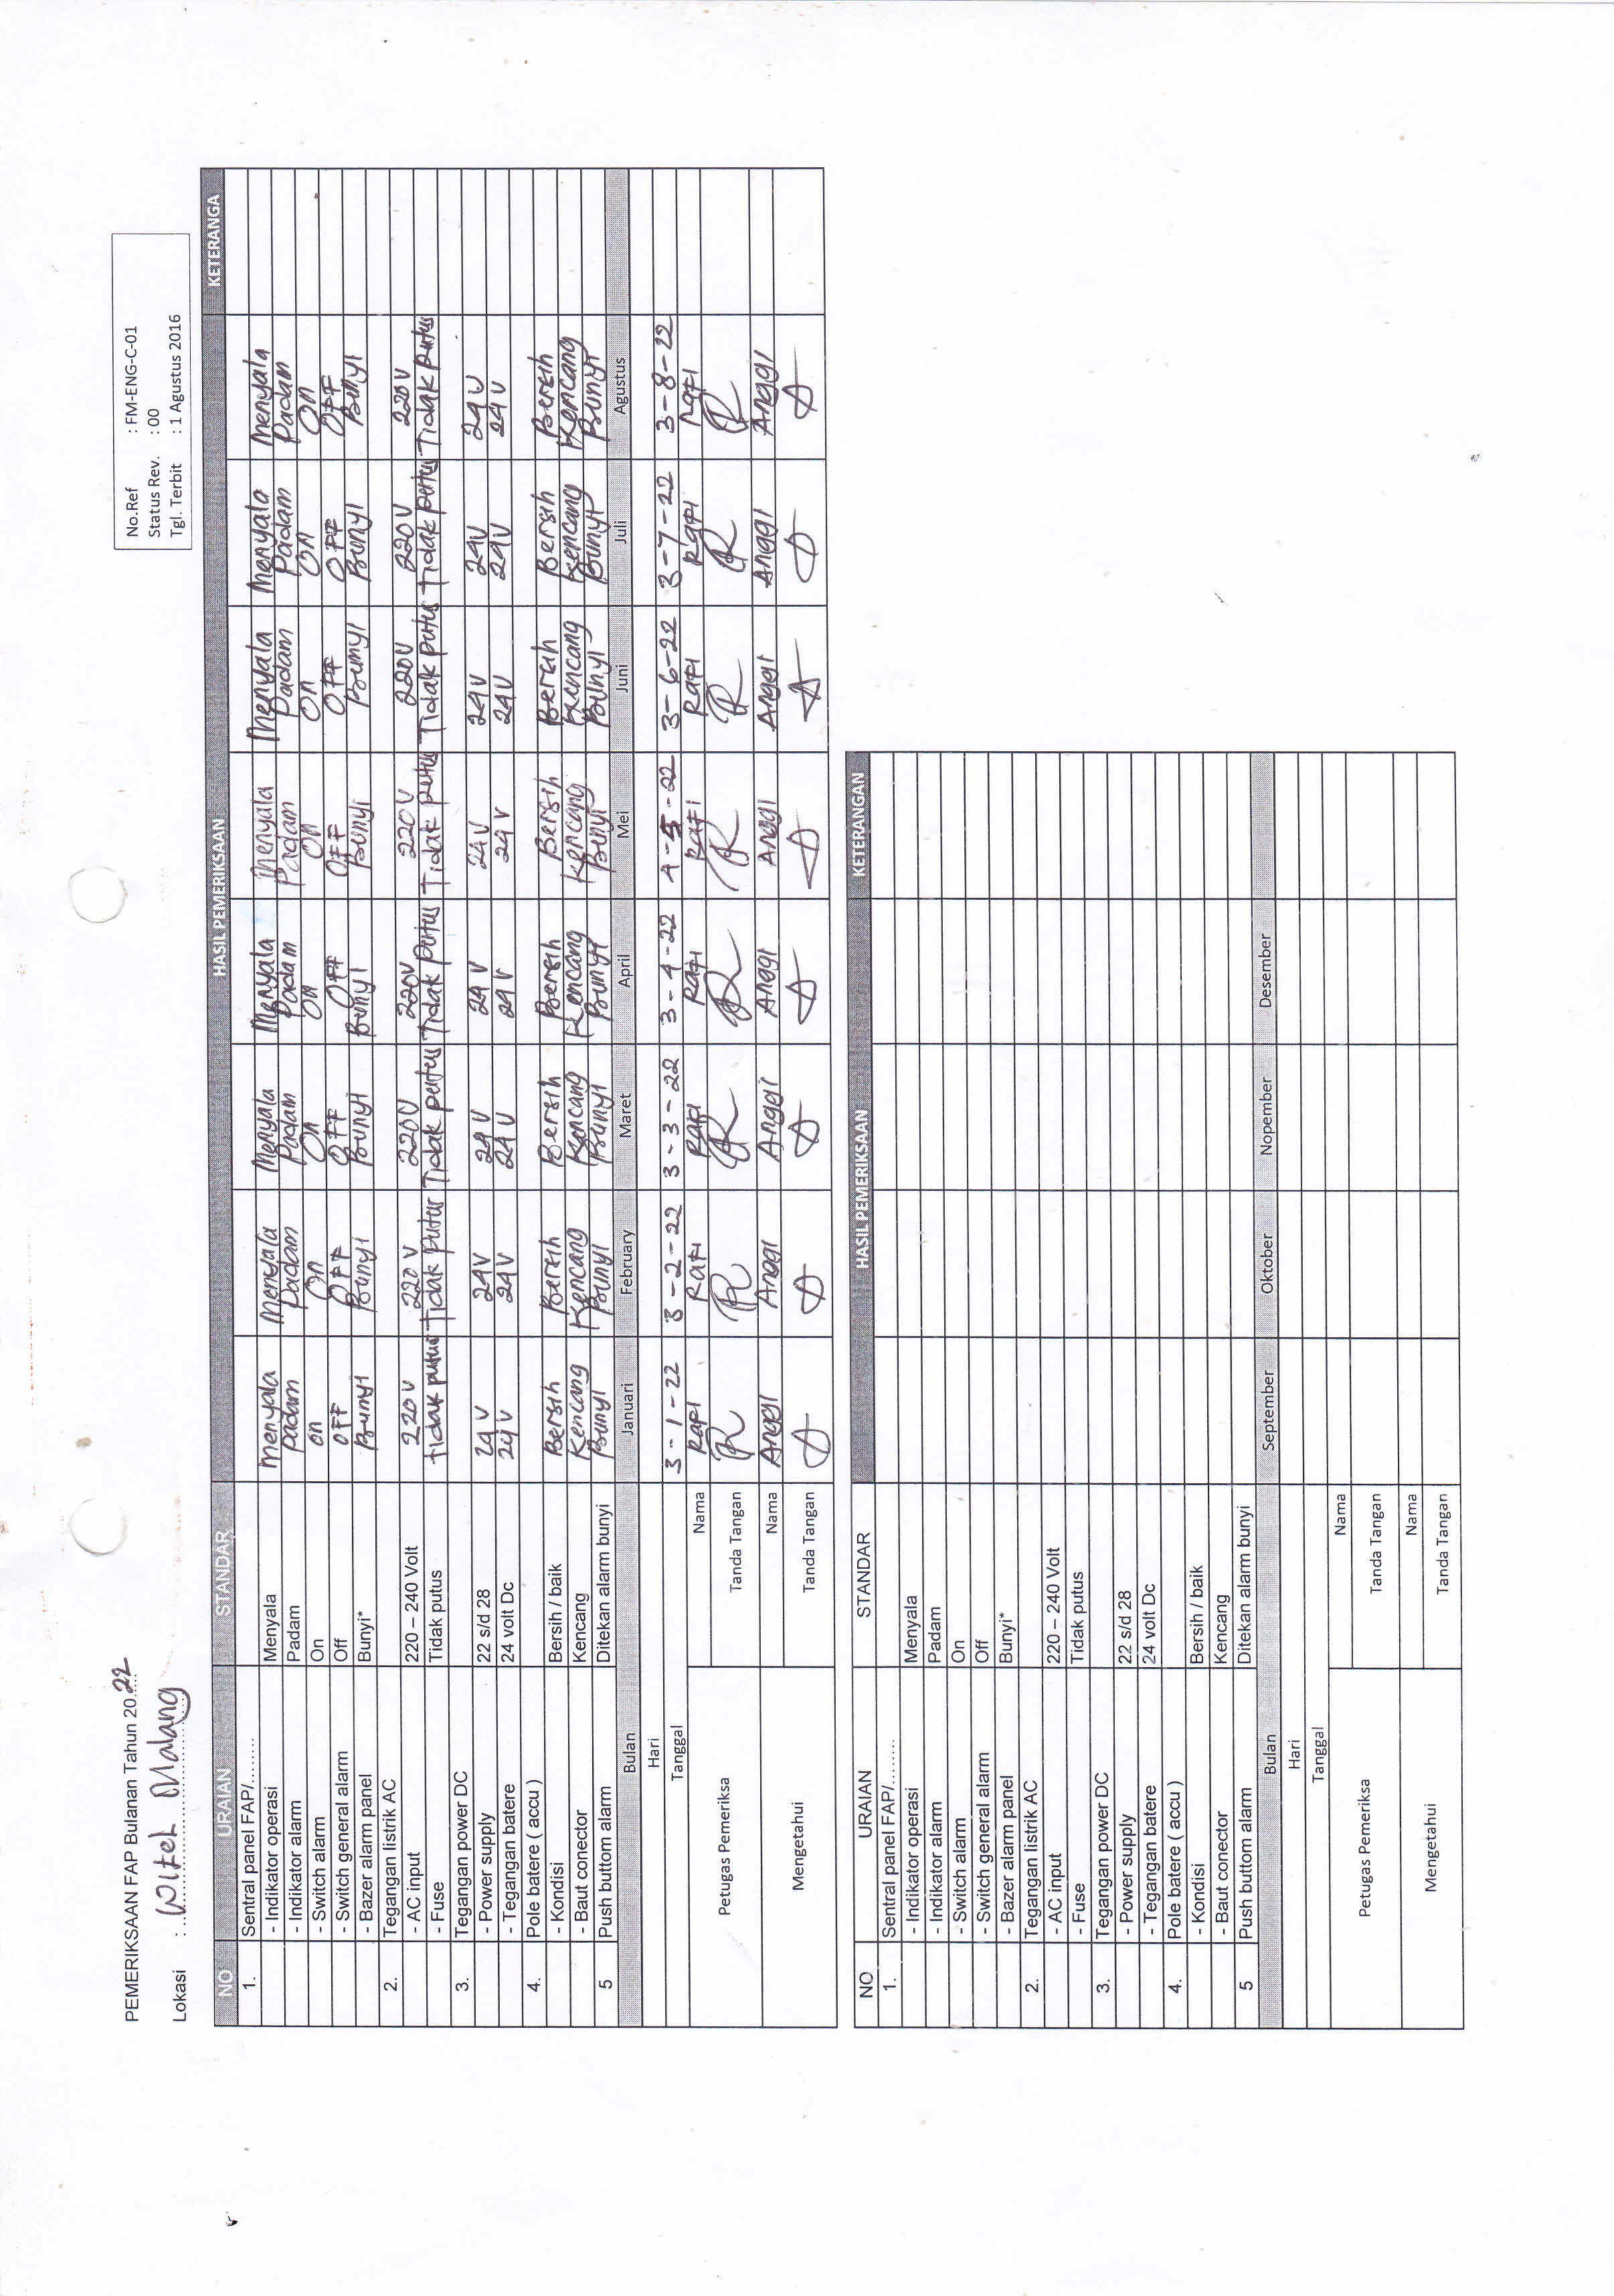 PEMERIKSAAN FAP Bulanan Tahun 20.22
Lokasi : Witel Malang
No.Ref : FM-ENG-C-01
Status Rev. : 00
Tgl. Terbit : 1 Agustus 2016
NO URAIAN STANDAR HASIL PEMERIKSAAN KETERANGA
1. Sentral panel FAP/........
- Indikator operasi Menyala Menyala Menyala Menyala Menyala Menyala Menyala Menyala Menyala
- Indikator alarm Padam Padam Padam Padam Padam Padam Padam Padam Padam
- Switch alarm On on On On On On On On On
- Switch general alarm Off OFF OFF OFF OFF OFF OFF OFF OFF
- Bazer alarm panel Bunyi* Bunyi Bunyi Bunyi Bunyi Bunyi Bunyi Bunyi Bunyi
2. Tegangan listrik AC
- AC input 220 – 240 Volt 220 V 220 V 220V 220V 220V 220V 220V 220V
- Fuse Tidak putus tidak putus Tidak putus Tidak putus Tidak putus Tidak putus Tidak putus Tidak putus Tidak putus
3. Tegangan power DC
- Power supply 22 s/d 28 24 V 24V 24 V 24 V 24V 24V 24V 24V
- Tegangan batere 24 volt Dc 24 V 24V 24 V 24 V 24 V 24V 24V 24 V
4. Pole batere ( accu )
- Kondisi Bersih / baik Bersih Bersih Bersih Bersih Bersih Bersih Bersih Bersih
- Baut conector Kencang Kencang Kencang Kencang Kencang Kencang Kencang Kencang Kencang
5 Push buttom alarm Ditekan alarm bunyi Bunyi Bunyi Bunyi Bunyi Bunyi Bunyi Bunyi Bunyi
Bulan Januari February Maret April Mei Juni Juli Agustus
Hari
Tanggal 3-1-22 3-2-22 3-3-22 3-4-22 4-5-22 3-6-22 3-7-22 3-8-22
Petugas Pemeriksa Nama Rafi Rafi Rafi Rafi Rafi Rafi Rafi Rafi
Tanda Tangan
Mengetahui Nama Anggi Anggi Anggi Anggi Anggi Anggi Anggi Anggi
Tanda Tangan
NO URAIAN STANDAR HASIL PEMERIKSAAN KETERANGAN
1. Sentral panel FAP/........
- Indikator operasi Menyala
- Indikator alarm Padam
- Switch alarm On
- Switch general alarm Off
- Bazer alarm panel Bunyi*
2. Tegangan listrik AC
- AC input 220 – 240 Volt
- Fuse Tidak putus
3. Tegangan power DC
- Power supply 22 s/d 28
- Tegangan batere 24 volt Dc
4. Pole batere ( accu )
- Kondisi Bersih / baik
- Baut conector Kencang
5 Push buttom alarm Ditekan alarm bunyi
Bulan September Oktober Nopember Desember
Hari
Tanggal
Petugas Pemeriksa Nama
Tanda Tangan
Mengetahui Nama
Tanda Tangan